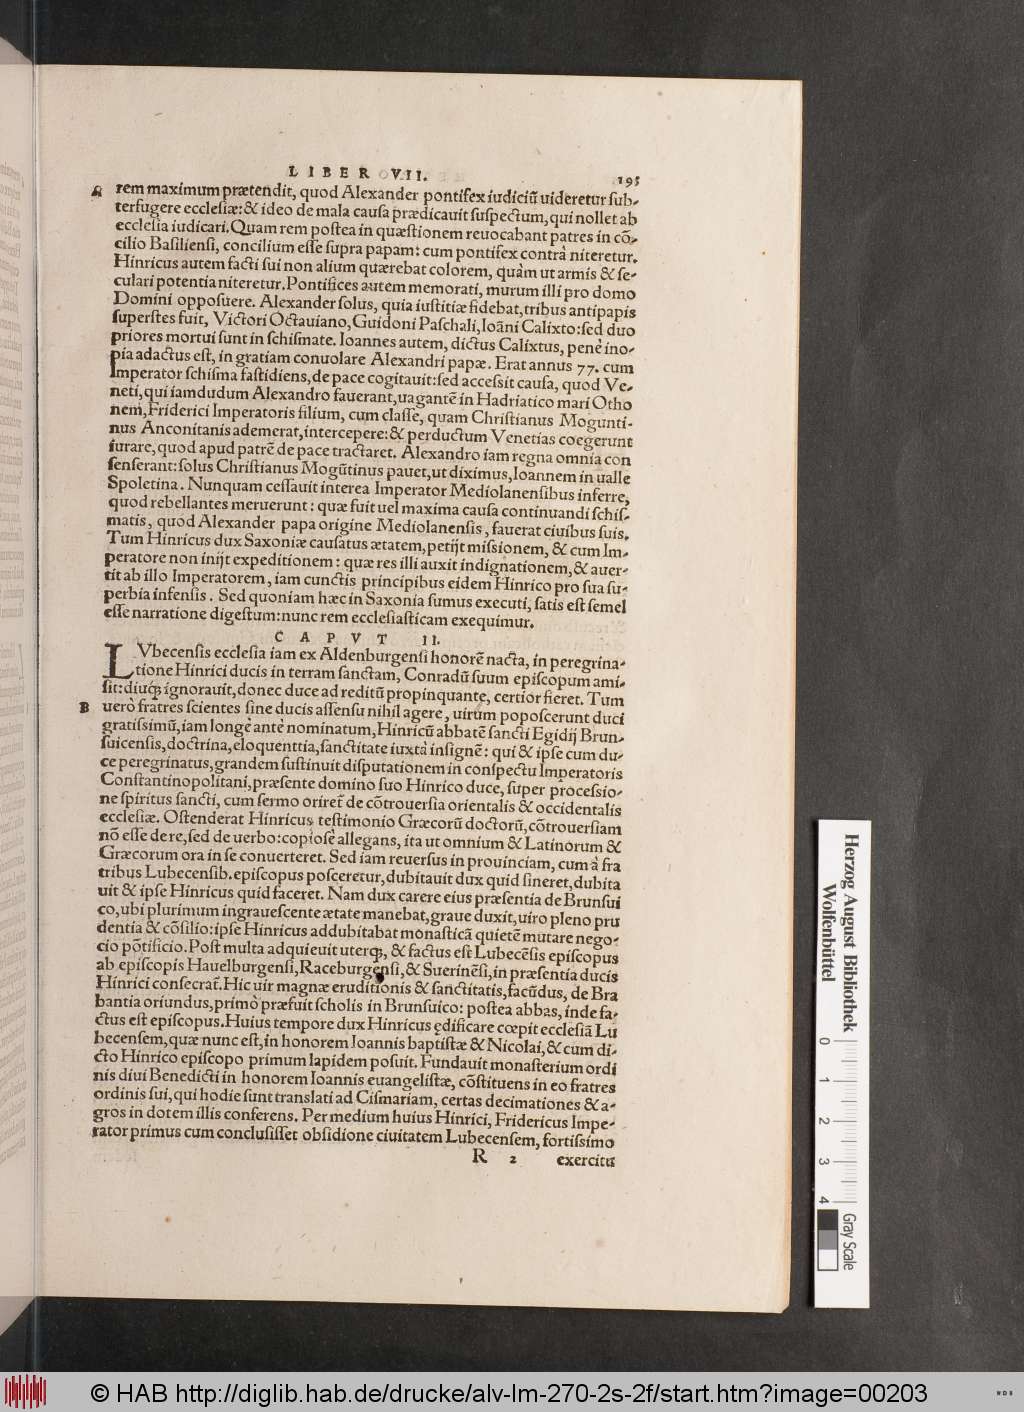 LIBER VII. 195
A rem maximum prætendit, quod Alexander pontifex iudiciũ uideretur sub-
terfugere ecclesiæ: & ideo de mala causa prædicauit suspectum, qui nollet ab
ecclesia iudicari. Quam rem postea in quæstionem reuocabant patres in cõ-
cilio Basiliensi, concilium esse supra papam: cum pontifex contrà niteretur.
Hinricus autem facti sui non alium quærebat colorem, quàm ut armis & se-
culari potentia niteretur. Pontifices autem memorati, murum illi pro domo
Domini opposuere. Alexander solus, quia iustitiæ fidebat, tribus antipapis
superstes fuit, Victori Octauiano, Guidoni Paschali, Ioãni Calixto: sed duo
priores mortui sunt in schismate. Ioannes autem, dictus Calixtus, penè ino-
pia adactus est, in gratiam conuolare Alexandri papæ. Erat annus 77. cum
Imperator schisma fastidiens, de pace cogitauit: sed accessit causa, quod Ve-
neti, qui iamdudum Alexandro fauerant, uagantẽ in Hadriatico mari Otho
nem, Friderici Imperatoris filium, cum classe, quam Christianus Mogunti-
nus Anconitanis ademerat, intercepere: & perductum Venetias coegerunt
iurare, quod apud patrẽ de pace tractaret. Alexandro iam regna omnia con
senserant: solus Christianus Mogũtinus pauet, ut diximus, Ioannem in ualle
Spoletina. Nunquam cessauit interea Imperator Mediolanensibus inferre,
quod rebellantes meruerunt: quæ fuit uel maxima causa continuandi schis-
matis, quod Alexander papa origine Mediolanensis, fauerat ciuibus suis.
Tum Hinricus dux Saxoniæ causatus ætatem, petijt missionem, & cum Im-
peratore non inijt expeditionem: quæ res illi auxit indignationem, & auer-
tit ab illo Imperatorem, iam cunctis principibus eidem Hinrico pro sua su-
perbia infensis. Sed quoniam hæc in Saxonia sumus executi, satis est semel
esse narratione digestum: nunc rem ecclesiasticam exequimur.
CAPVT II.
LVbecensis ecclesia iam ex Aldenburgensi honorẽ nacta, in peregrina-
tione Hinrici ducis in terram sanctam, Conradũ suum episcopum ami-
sit: diuq́; ignorauit, donec duce ad reditũ propinquante, certior fieret. Tum
B uerò fratres scientes sine ducis assensu nihil agere, uirum poposcerunt duci
gratissimũ, iam longè antè nominatum, Hinricũ abbatẽ sancti Egidij Brun-
suicensis, doctrina, eloquenttia, sanctitate iuxtà insignẽ: qui & ipse cum du-
ce peregrinatus, grandem sustinuit disputationem in conspectu Imperatoris
Constantinopolitani, præsente domino suo Hinrico duce, super processio-
ne spiritus sancti, cum sermo oriret̃ de cõtrouersia orientalis & occidentalis
ecclesiæ. Ostenderat Hinricus testimonio Græcorũ doctorũ, cõtrouersiam
nõ esse de re, sed de uerbo: copiosè allegans, ita ut omnium & Latinorum &
Græcorum ora in se conuerteret. Sed iam reuersus in prouinciam, cum à fra
tribus Lubecensib. episcopus posceretur, dubitauit dux quid sineret, dubita
uit & ipse Hinricus quid faceret. Nam dux carere eius præsentia de Brunsui
co, ubi plurimum ingrauescente ætate manebat, graue duxit, uiro pleno pru
dentia & cõsilio: ipse Hinricus addubitabat monasticã quietẽ mutare nego-
cio põtificio. Post multa adquieuit uterq́;, & factus est Lubecẽsis episcopus
ab episcopis Hauelburgensi, Raceburgensi, & Suerinẽsi, in præsentia ducis
Hinrici consecrat̃. Hic uir magnæ eruditionis & sanctitatis, facũdus, de Bra
bantia oriundus, primò præfuit scholis in Brunsuico: postea abbas, inde fa-
ctus est episcopus. Huius tempore dux Hinricus ędificare cœpit ecclesiã Lu
becensem, quæ nunc est, in honorem Ioannis baptistæ & Nicolai, & cum di-
cto Hinrico episcopo primum lapidem posuit. Fundauit monasterium ordi
nis diui Benedicti in honorem Ioannis euangelistæ, cõstituens in eo fratres
ordinis sui, qui hodie sunt translati ad Cismariam, certas decimationes & a-
gros in dotem illis conferens. Per medium huius Hinrici, Fridericus Impe-
rator primus cum conclusisset obsidione ciuitatem Lubecensem, fortissimo
R 2 exercitu
Herzog August Bibliothek
Wolfenbüttel
0 1 2 3 4
Gray Scale
© HAB http://diglib.hab.de/drucke/alv-lm-270-2s-2f/start.htm?image=00203